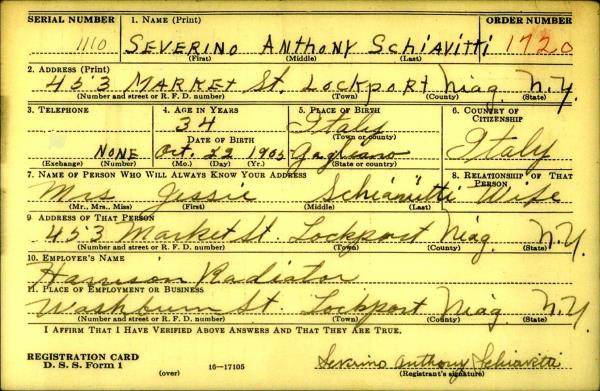 SERIAL NUMBER 1. NAME (Print) ORDER NUMBER
1110 SEVERINO ANTHONY SCHIAVITTI 1720
(First) (Middle) (Last)
2. ADDRESS (Print)
453 MARKET St. LOCKPORT Niag. N.Y.
(Number and street or R. F. D. number) (Town) (County) (State)
3. TELEPHONE 4. AGE IN YEARS 5. PLACE OF BIRTH 6. COUNTRY OF CITIZENSHIP
34 Italy
(Town or county)
DATE OF BIRTH Italy
NONE Oct. 22 1905 Gagliano
(Exchange) (Number) (Mo.) (Day) (Yr.) (State or country)
7. NAME OF PERSON WHO WILL ALWAYS KNOW YOUR ADDRESS 8. RELATIONSHIP OF THAT PERSON
Mrs Jessie Schiavitti Wife
(Mr., Mrs., Miss) (First) (Middle) (Last)
9 ADDRESS OF THAT PERSON
453 Market St. Lockport Niag. N.Y.
(Number and street or R. F. D. number) (Town) (County) (State)
10. EMPLOYER'S NAME
Harrison Radiator
11. PLACE OF EMPLOYMENT OR BUSINESS
Washburn St. Lockport Niag N.Y.
(Number and street or R. F. D. number) (Town) (County) (State)
I AFFIRM THAT I HAVE VERIFIED ABOVE ANSWERS AND THAT THEY ARE TRUE.
REGISTRATION CARD
D. S. S. Form 1 (over) 16-17105 Severino Anthony Schiavitti
(Registrant's signature)